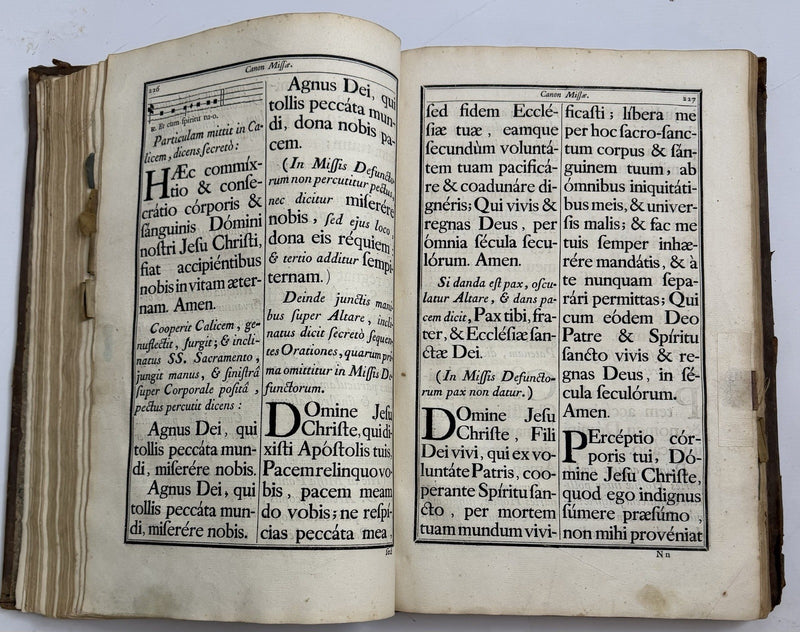 226
Canon Missæ.
℟. Et cum spiritu tu-o.
Particulam mittit in Ca-
licem, dicens secretò:
HÆc commíx-
tio & conse-
crátio córporis &
sánguinis Dómini
nostri Jesu Christi,
fiat accipiéntibus
nobis in vitam æter-
nam. Amen.
Cooperit Calicem, ge-
nuflectit, surgit; & incli-
natus SS. Sacramento,
jungit manus, & sinistrâ
super Corporale positâ,
pectus percutit dicens:
Agnus Dei, qui
tollis peccáta mun-
di, miserére nobis.
Agnus Dei, qui
tollis peccáta mun-
di, miserére nobis.
Agnus Dei, qui
tollis peccáta mun-
di, dona nobis pa-
cem.
(In Missis Defuncto-
rum non percutitur pectus,
nec dicitur miserére
nobis, sed ejus loco
dona eis réquiem:
& tertio additur sempi-
ternam.)
Deinde junctis mani-
bus super Altare, incli-
natus dicit secretò sequen-
tes Orationes, quarum pri-
ma omittitur in Missis De-
functorum.
DOmine Jesu
Christe, qui di-
xisti Apóstolis tuis,
Pacem relinquo vo-
bis, pacem meam
do vobis; ne respí-
cias peccáta mea,
sed
Canon Missæ.
227
sed fidem Ecclé-
siæ tuæ, eamque
secundùm voluntá-
tem tuam pacificá-
re & coadunáre di-
gnéris; Qui vivis &
regnas Deus, per
ómnia sécula secu-
lórum. Amen.
Si danda est pax, oscu-
latur Altare, & dans pa-
cem dicit, Pax tibi, fra-
ter, & Ecclésiæ san-
ctæ Dei.
(In Missis Defuncto-
rum pax non datur.)
DOmine Jesu
Christe, Fili
Dei vivi, qui ex vo-
luntáte Patris, coo-
perante Spíritu san-
cto, per mortem
tuam mundum vivi-
ficasti; líbera me
per hoc sacro-sanc-
tum corpus & sán-
guinem tuum, ab
ómnibus iniquitáti-
bus meis, & univer-
sis malis; & fac me
tuis semper inhæ-
rére mandátis, & à
te nunquam sepa-
rári permittas; Qui
cum eódem Deo
Patre & Spíritu
sancto vivis & re-
gnas Deus, in sé-
cula seculórum.
Amen.
PErcéptio cór-
poris tui, Dó-
mine Jesu Christe,
quod ego indignus
súmere præsúmo,
non mihi provéniat
Nn